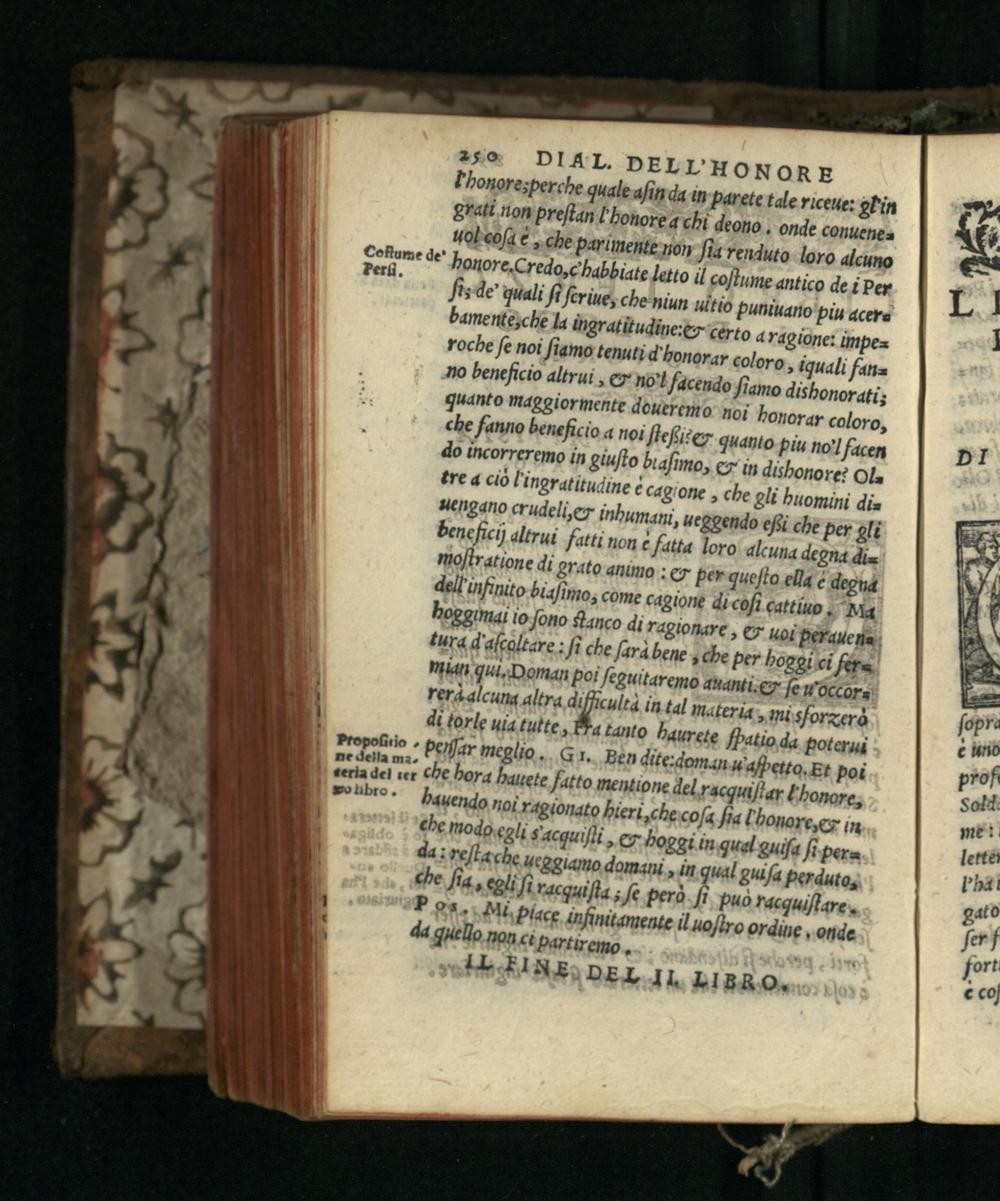 250 DIAL. DELL'HONORE
l'honore; perche quale asin da in parete tale riceue: gl'in
grati non prestan l'honore a chi deono. onde conuene=
uol cosa è, che parimente non sia renduto loro alcuno
Costume de'
Persi.
honore. Credo, c'habbiate letto il costume antico de i Per
si; de' quali si scriue, che niun uitio puniuano piu acer=
bamente, che la ingratitudine: & certo a ragione: impe=
roche se noi siamo tenuti d'honorar coloro, iquali fan=
no beneficio altrui, & no'l facendo siamo dishonorati;
quanto maggiormente doueremo noi honorar coloro,
che fanno beneficio a noi stessi? & quanto piu no'l facen
do incorreremo in giusto biasimo, & in dishonore? Ol=
tre a ciò l'ingratitudine è cagione, che gli huomini di=
uengano crudeli, & inhumani, ueggendo essi che per gli
beneficij altrui fatti non è fatta loro alcuna degna di=
mostratione di grato animo: & per questo ella è degna
dell'infinito biasimo, come cagione di cosi cattiuo. Ma
hoggimai io sono stanco di ragionare, & uoi perauen=
tura d'ascoltare: si che sarà bene, che per hoggi ci fer=
mian qui. Doman poi seguitaremo auanti. & se u'occor=
rerà alcuna altra difficultà in tal materia, mi sforzerò
di torle uia tutte, Fra tanto haurete spatio da poterui
Propositio
ne della ma.
teria del ter
zo libro.
pensar meglio. GI. Ben dite: doman u'aspetto. Et poi
che hora hauete fatto mentione del racquistar l'honore,
hauendo noi ragionato hieri, che cosa sia l'honore, & in
che modo egli s'acquisti, & hoggi in qual guisa si per=
da: resta che ueggiamo domani, in qual guisa perduto,
che sia, egli si racquista; se però si può racquistare.
Pos. Mi piace infinitamente il uostro ordine, onde
da quello non ci partiremo.
IL FINE DEL II. LIBRO.
DI
sopra
è uno
profe
Solda
me:
letter
l'ha i
gato
ser f
forti
è cos